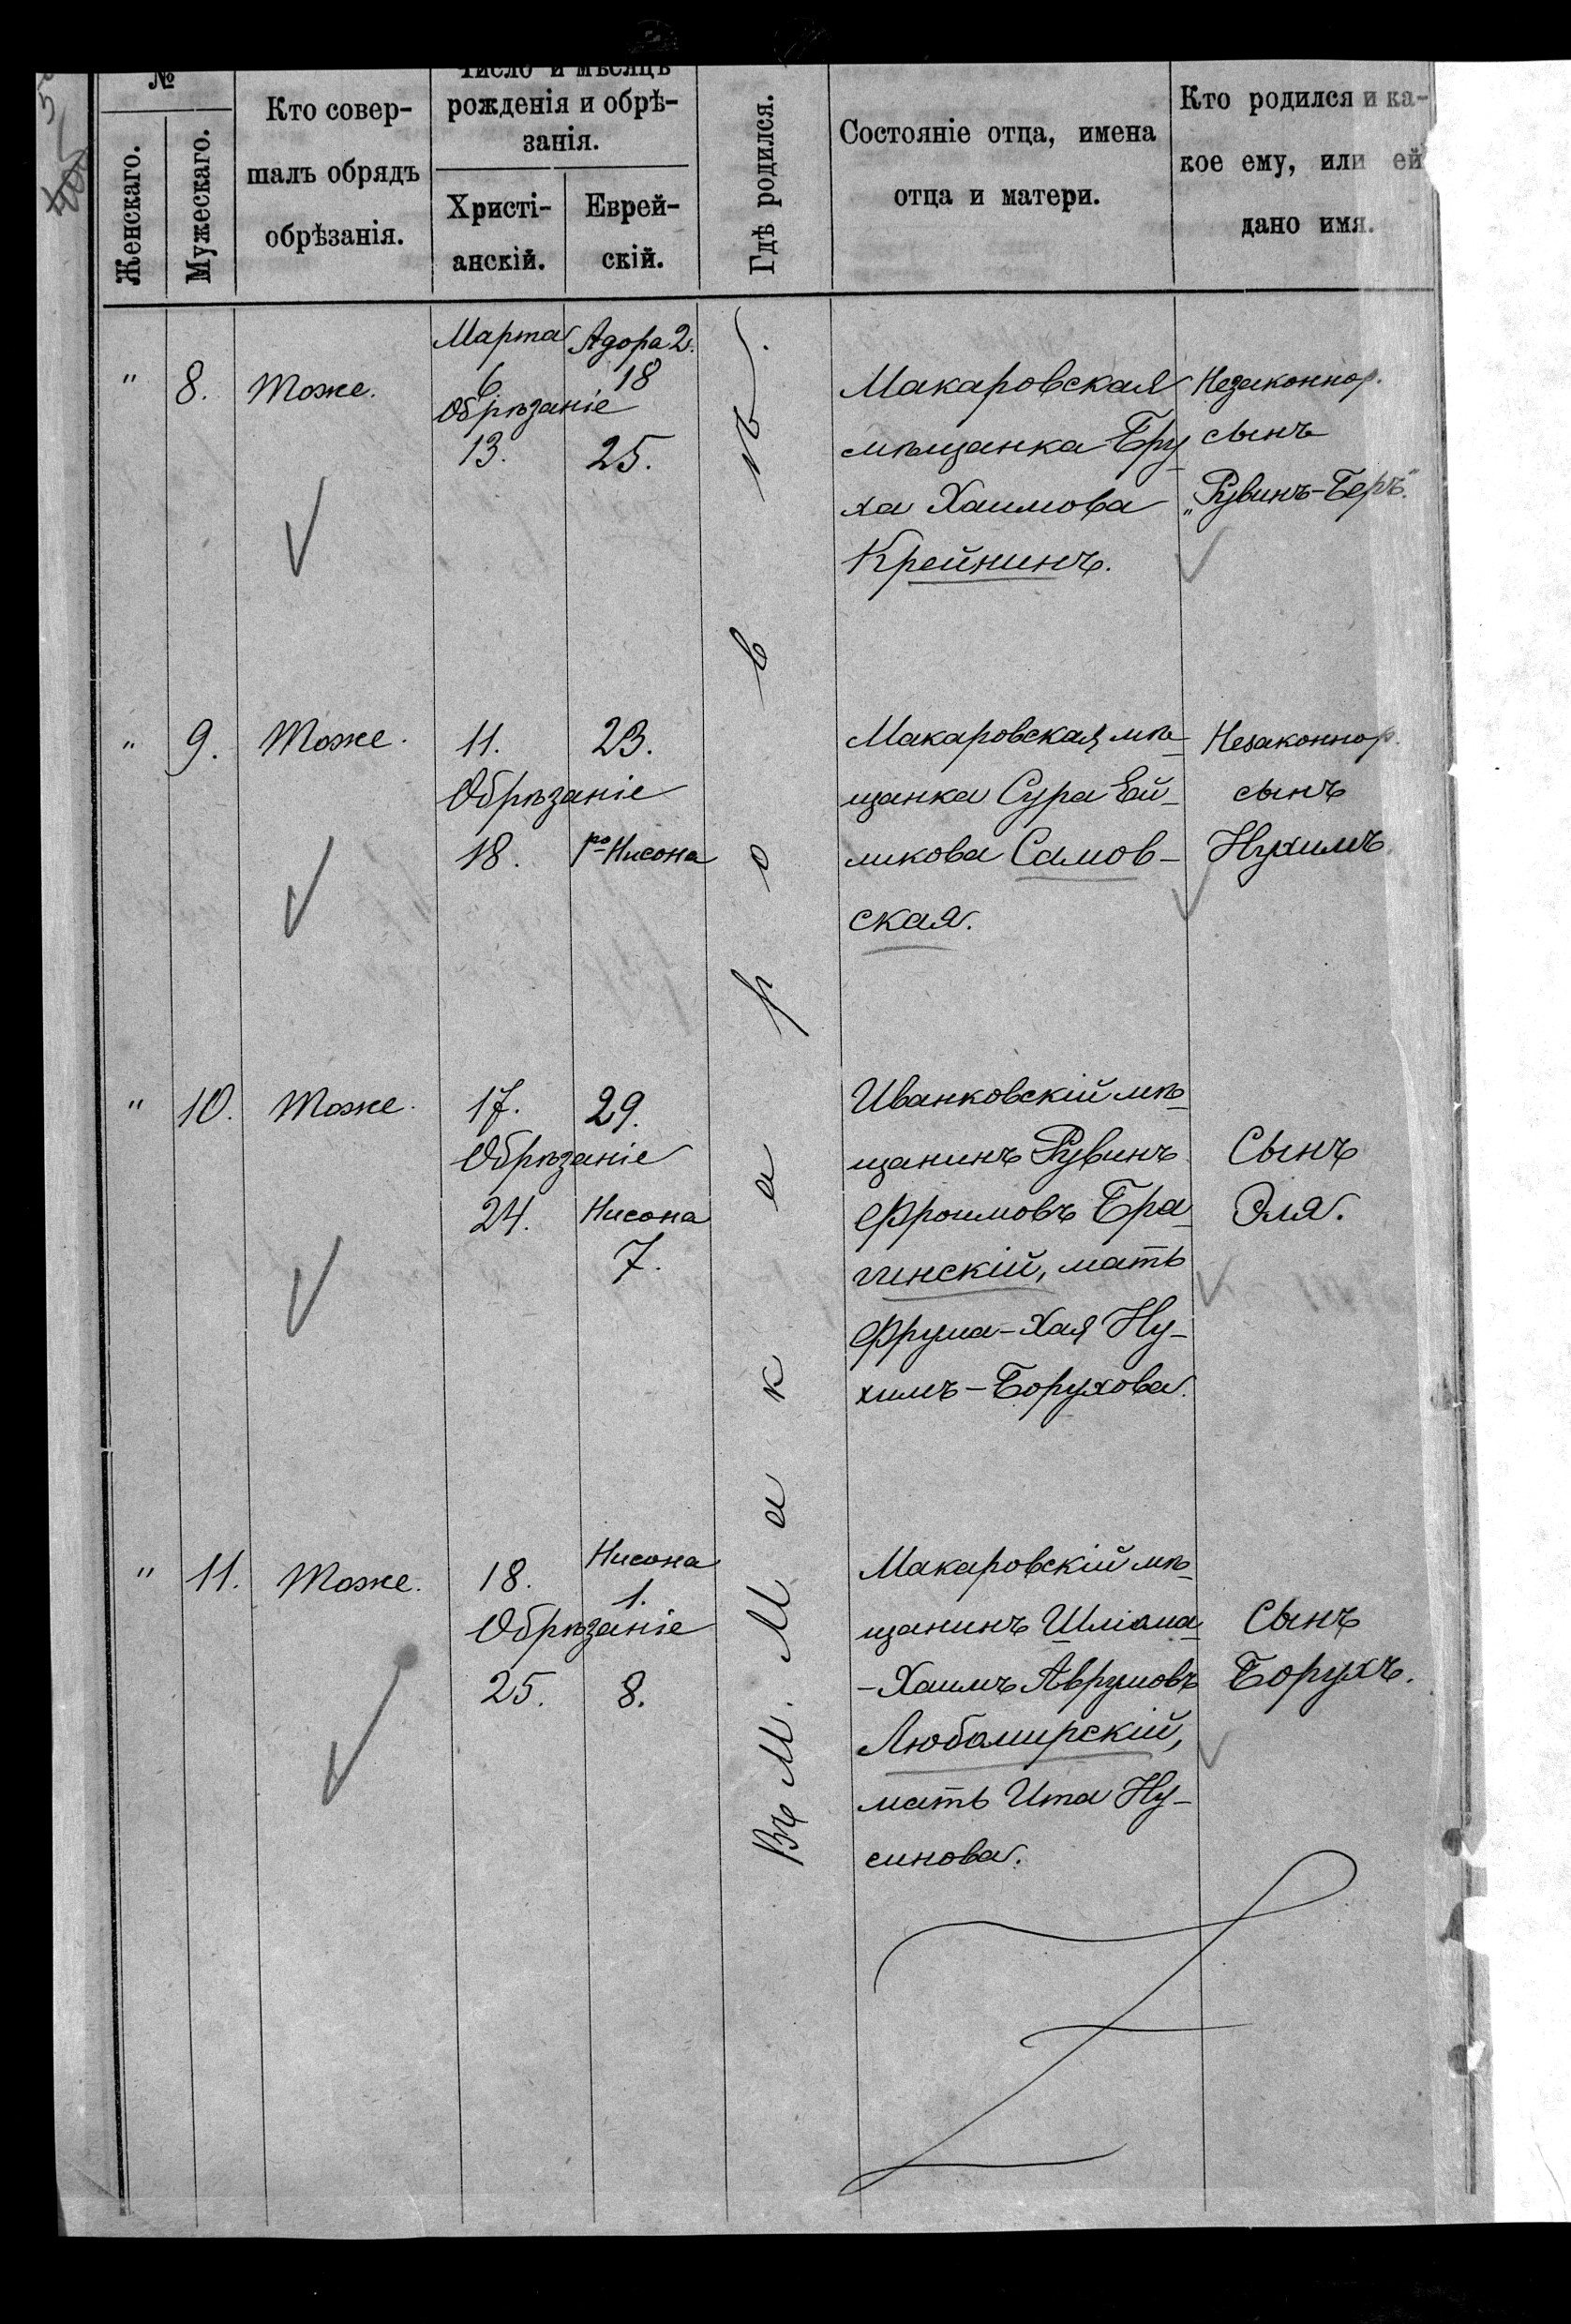 №
Женскаго.
Мужескаго.
Кто совер-
шалъ обрядъ
обрѣзанія.
Число и мѣсяцъ
рожденія и обрѣ-
занія.
Христі-
анскій.
Еврей-
скій.
Гдѣ родился.
Состояніе отца, имена
отца и матери.
Кто родился и ка-
кое ему, или ей
дано имя.
Въ м. Макаровѣ.
" 8. Тоже.
Марта Адора 2.
6 18
Обрѣзаніе
13. 25.
Макаровская
мѣщанка Бру-
ха Хаимова
Крейнинъ.
Незаконнор.
сынъ
„Рувинъ-Беръ".
" 9. Тоже.
11. 23.
Обрѣзаніе
18. 1го Нисона
Макаровская мѣ-
щанка Сура Ей-
ликова Самов-
ская.
Незаконнор.
сынъ
Нухимъ.
" 10. Тоже.
17. 29.
Обрѣзаніе
24. Нисона
7.
Иванковскій мѣ-
щанинъ Рувинъ
Фроимовъ Бра-
гинскій, мать
Фрума-Хая Ну-
химъ-Борухова.
Сынъ
Эля.
" 11. Тоже.
18. Нисона
1.
Обрѣзаніе
25. 8.
Макаровскій мѣ-
щанинъ Шліома-
-Хаимъ Аврумовъ
Любомирскій,
мать Ита Ну-
синова.
Сынъ
Борухъ.